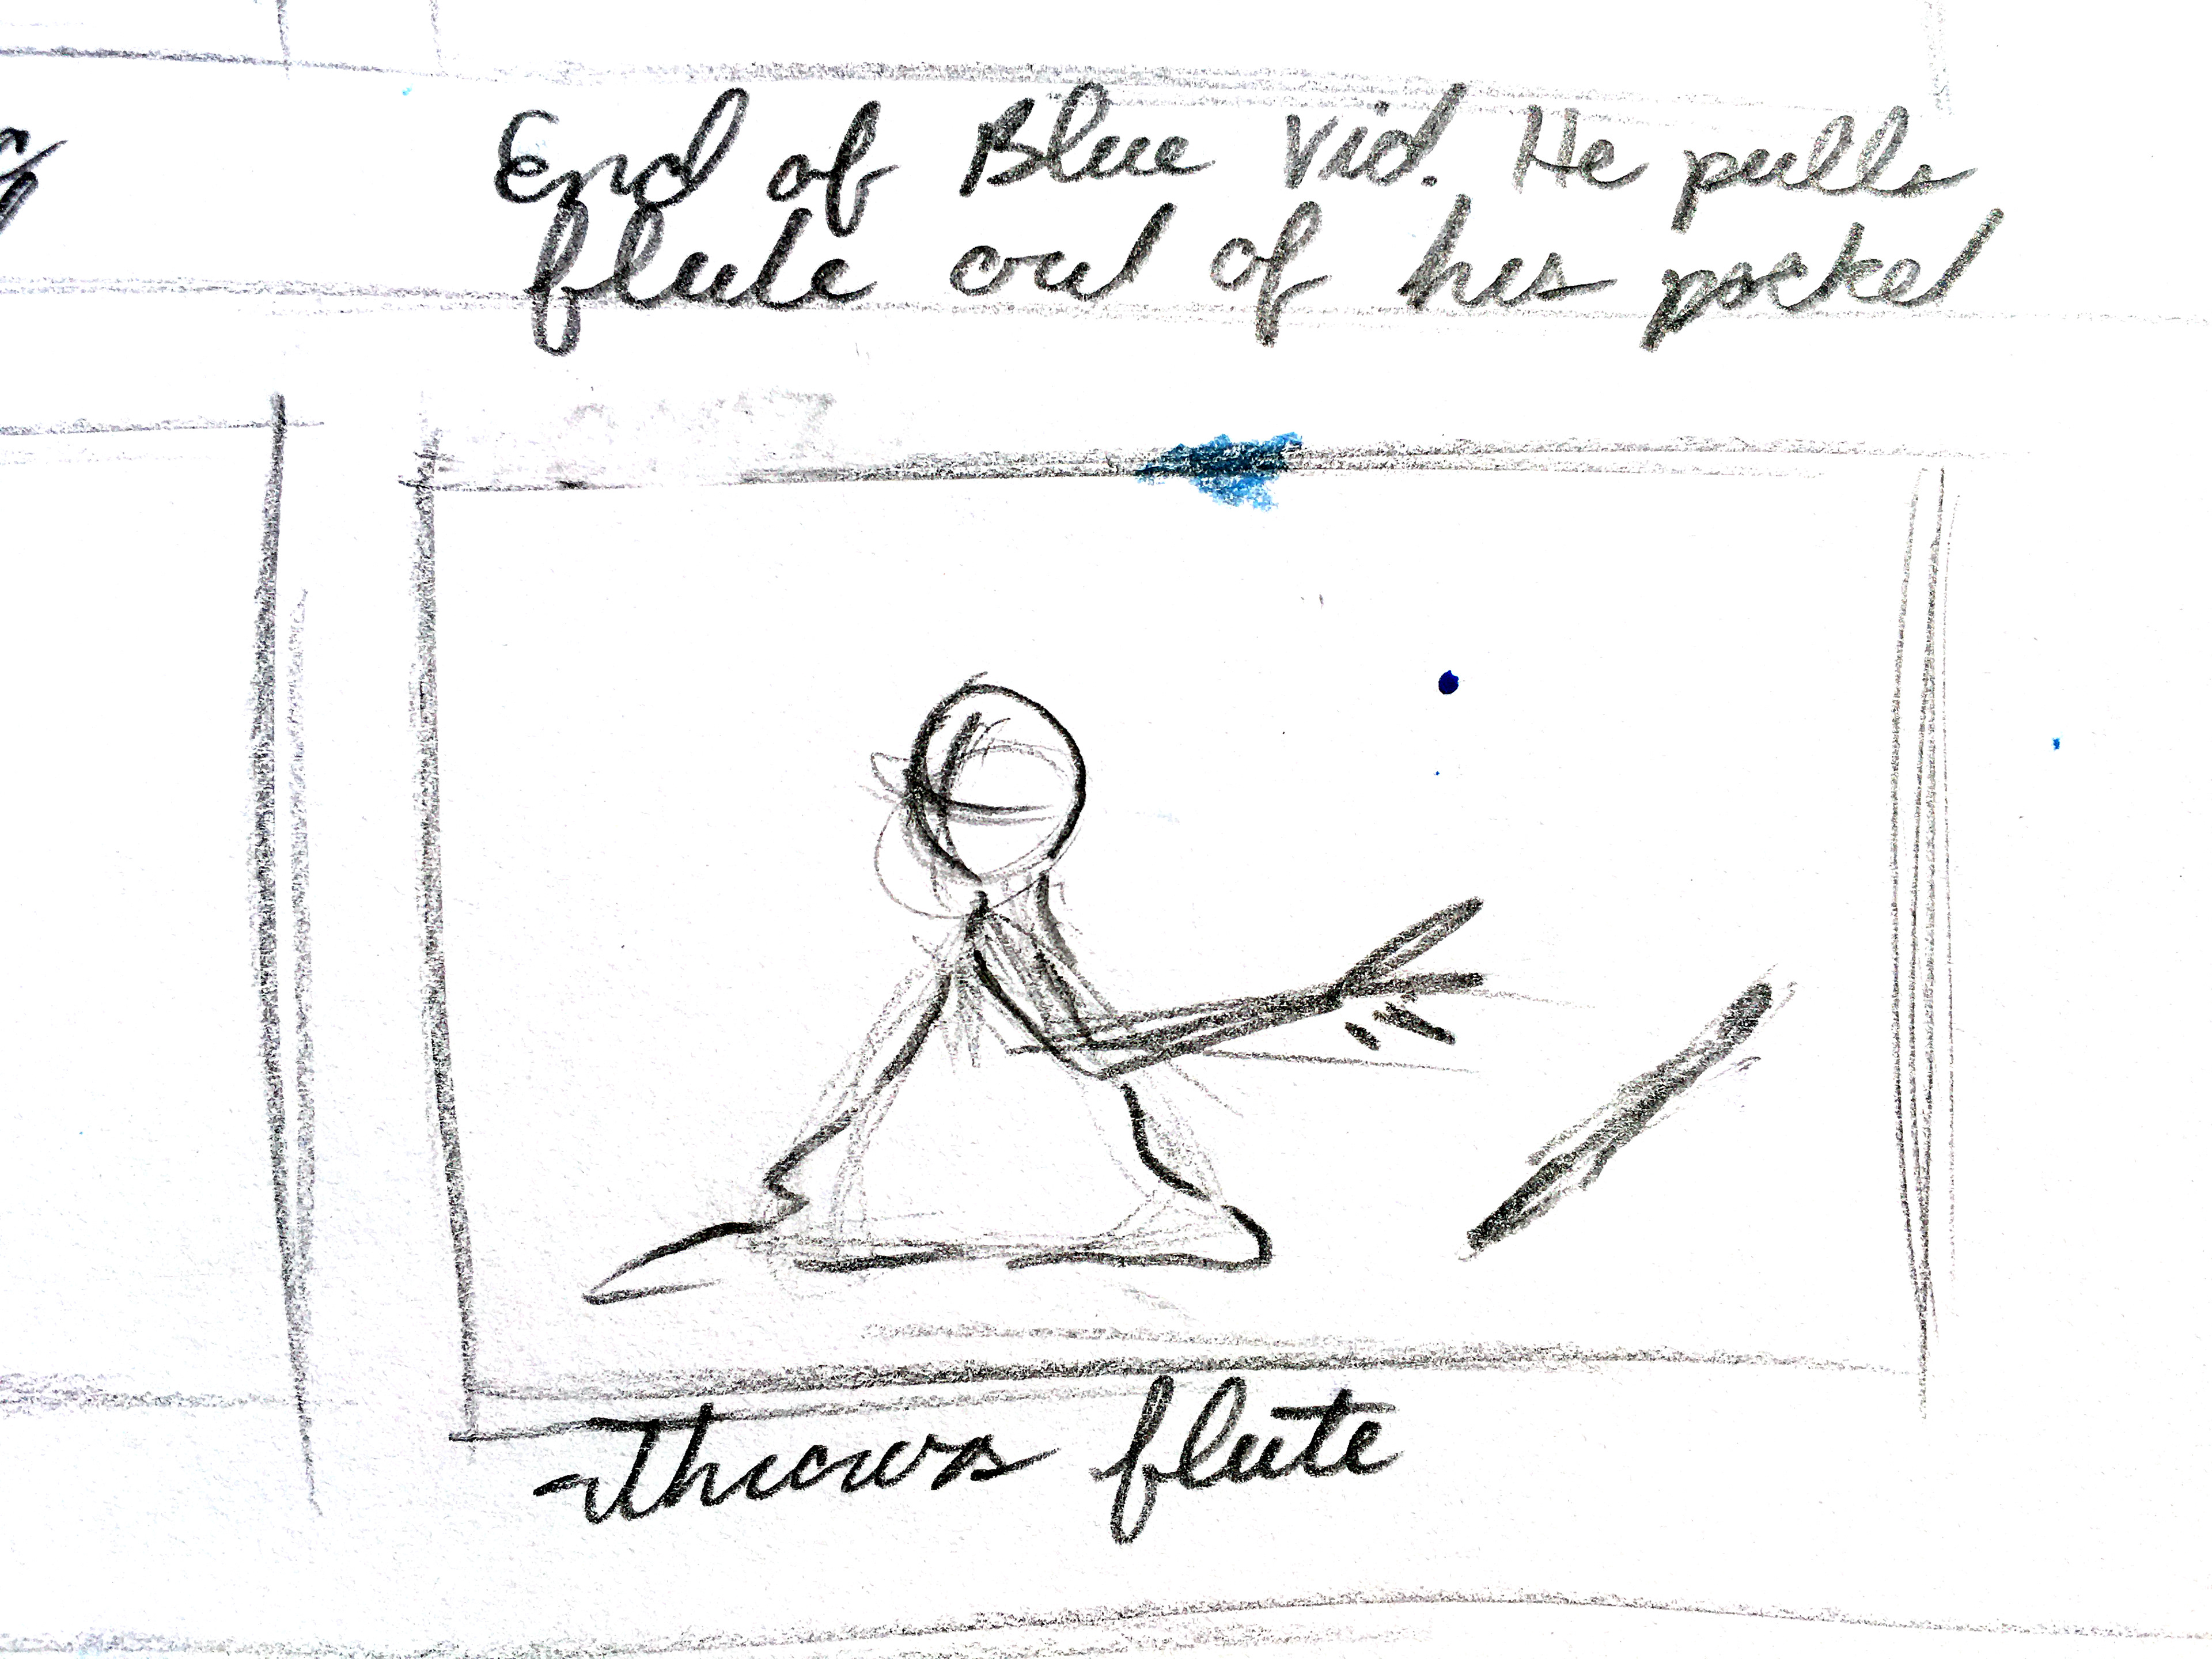 End of Blue Vid. He pulls
flute out of his pocket
Throws flute